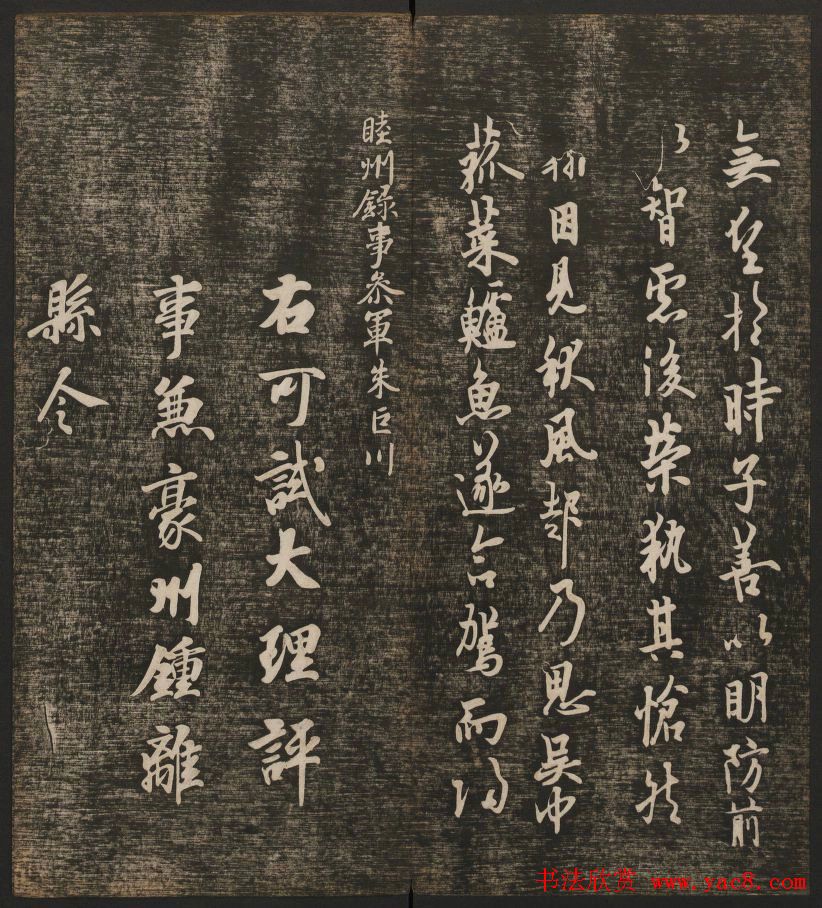 無望於時子善以明防前
以智慮後榮執其愴然
翰因見秋風起乃思吳中
菰菜鱸魚遂命駕而歸
睦州録事參軍朱巨川
右可試大理評
事兼豪州鍾離
縣令
书法欣赏 www.yac8.com